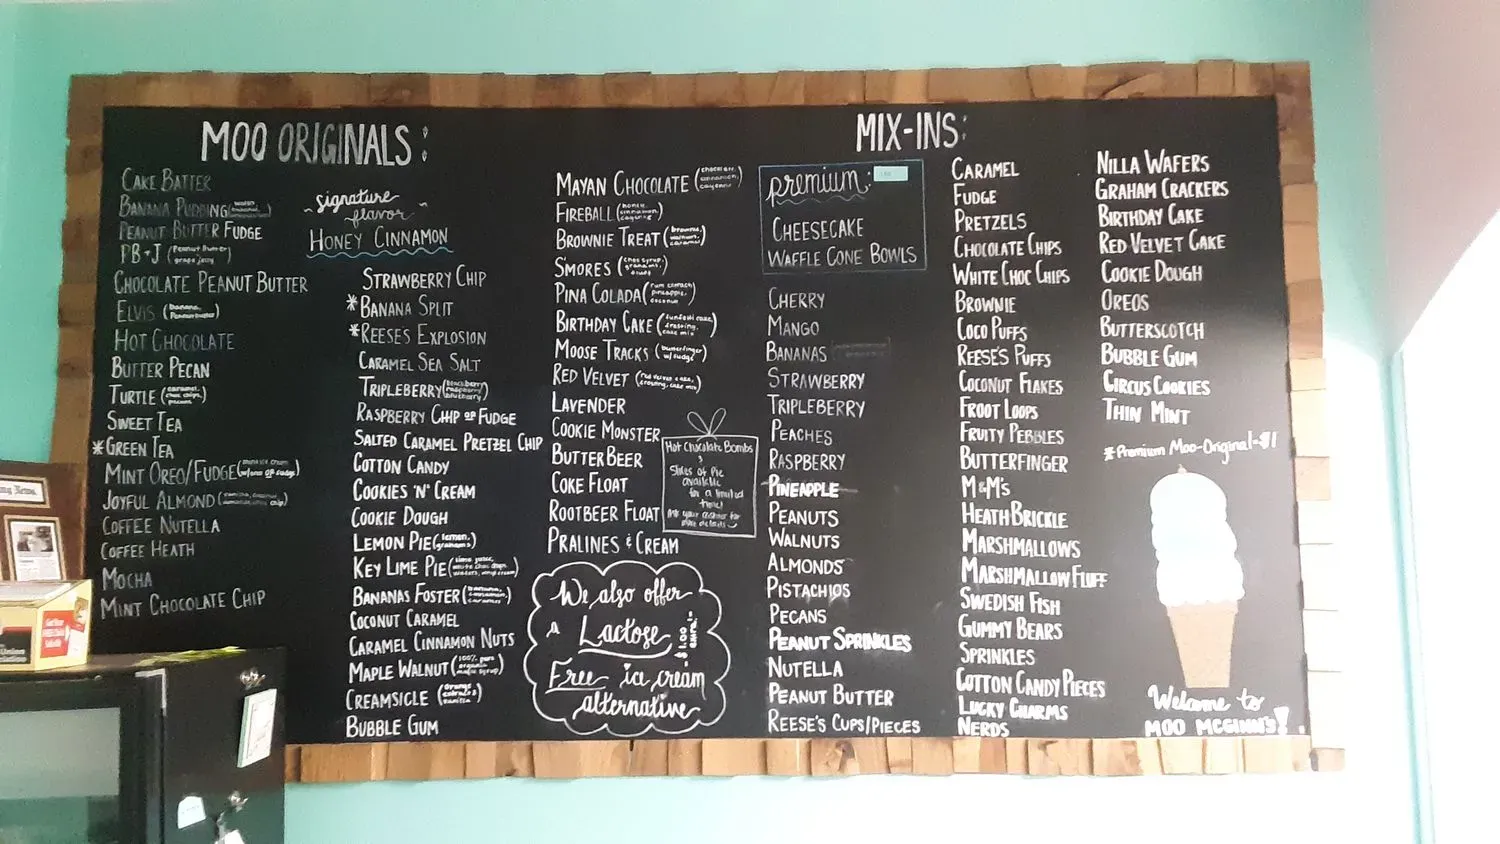 MOO ORIGINALS:
CAKE BATTER
BANANA PUDDING
PEANUT BUTTER FUDGE
PB+J (Peanut butter
grape jelly)
CHOCOLATE PEANUT BUTTER
ELVIS (banana,
Peanut butter)
HOT CHOCOLATE
BUTTER PECAN
TURTLE (caramel,
choc chips,
pecans)
SWEET TEA
*GREEN TEA
MINT OREO/FUDGE
JOYFUL ALMOND
COFFEE NUTELLA
COFFEE HEATH
MOCHA
MINT CHOCOLATE CHIP
~ signature
flavor ~
HONEY CINNAMON
STRAWBERRY CHIP
*BANANA SPLIT
*REESE'S EXPLOSION
CARAMEL SEA SALT
TRIPLEBERRY (blackberry
raspberry
blueberry)
RASPBERRY CHIP OR FUDGE
SALTED CARAMEL PRETZEL CHIP
COTTON CANDY
COOKIES 'N' CREAM
COOKIE DOUGH
LEMON PIE (lemon,
grahams)
KEY LIME PIE
BANANAS FOSTER
COCONUT CARAMEL
CARAMEL CINNAMON NUTS
MAPLE WALNUT (100% pure
organic
maple syrup)
CREAMSICLE
BUBBLE GUM
MAYAN CHOCOLATE (chocolate,
cinnamon,
cayenne)
FIREBALL (honey,
cinnamon,
cayenne)
BROWNIE TREAT (brownie,
walnut,
caramel)
S'MORES
PINA COLADA (rum extract
pineapple,
coconut)
BIRTHDAY CAKE (funfetti cake,
frosting,
cake mix)
MOOSE TRACKS (butterfinger
w/ fudge)
RED VELVET (red velvet cake,
frosting, cake mix)
LAVENDER
COOKIE MONSTER
BUTTER BEER
COKE FLOAT
ROOTBEER FLOAT
PRALINES & CREAM
Hot Chocolate Bombs
&
Slices of Pie
available
for a limited
time!
Ask your cashier for
more details
We also offer
a Lactose
Free ice cream
alternative
-$1.00
extra-
MIX-INS:
premium:
CHEESECAKE
WAFFLE CONE BOWLS
CHERRY
MANGO
BANANAS
STRAWBERRY
TRIPLEBERRY
PEACHES
RASPBERRY
PINEAPPLE
PEANUTS
WALNUTS
ALMONDS
PISTACHIOS
PECANS
PEANUT SPRINKLES
NUTELLA
PEANUT BUTTER
REESE'S CUPS/PIECES
CARAMEL
FUDGE
PRETZELS
CHOCOLATE CHIPS
WHITE CHOC CHIPS
BROWNIE
COCO PUFFS
REESE'S PUFFS
COCONUT FLAKES
FROOT LOOPS
FRUITY PEBBLES
BUTTERFINGER
M&M'S
HEATH BRICKLE
MARSHMALLOWS
MARSHMALLOW FLUFF
SWEDISH FISH
GUMMY BEARS
SPRINKLES
COTTON CANDY PIECES
LUCKY CHARMS
NERDS
NILLA WAFERS
GRAHAM CRACKERS
BIRTHDAY CAKE
RED VELVET CAKE
COOKIE DOUGH
OREOS
BUTTERSCOTCH
BUBBLE GUM
CIRCUS COOKIES
THIN MINT
*Premium Moo-Original=$1
Welcome to
MOO MCGINN'S!